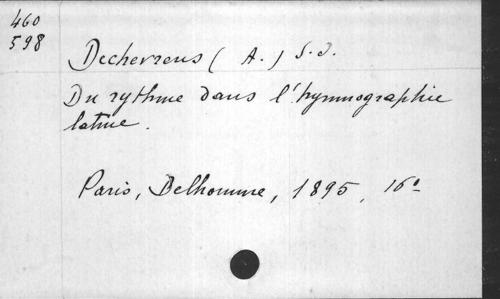 460
598
Dechevrens (A.) S.J.
Du rythme dans l'hymnographie
latine.
Paris, Delhomme, 1895, 16°